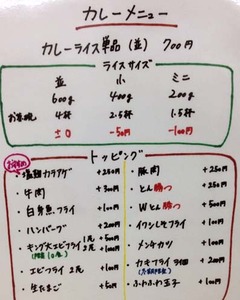 カレーメニュー
カレーライス単品(並) 700円
ライスサイズ
並 小 ミニ
600g 400g 200g
お茶碗 4杯 2.5杯 1.5杯
±0 -50円 -100円
トッピング
・塩麹カラアゲ +250円
・牛肉 +300円
・白身魚フライ +100円
・ハンバーグ +200円
・キング大エビフライ 1尾 +500円
2尾 +1000円
・エビフライ 2尾 +100円
・生たまご +50円
・豚肉 +250円
・とん勝つ +250円
・Wとん勝つ +500円
・イワシしそフライ +100円
・メンチカツ +100円
・カキフライ
・ふわふわ玉子 +100円